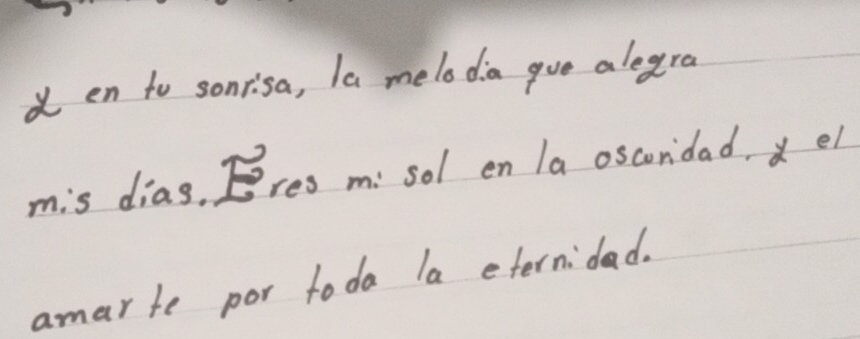 y en tu sonrisa, la melodia que alegra
mis días. Eres mi sol en la oscuridad. y el
amarte por toda la eternidad.